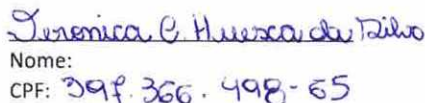 Veronica C. Huesca da Silva
Nome:
CPF: 398.366.498-65